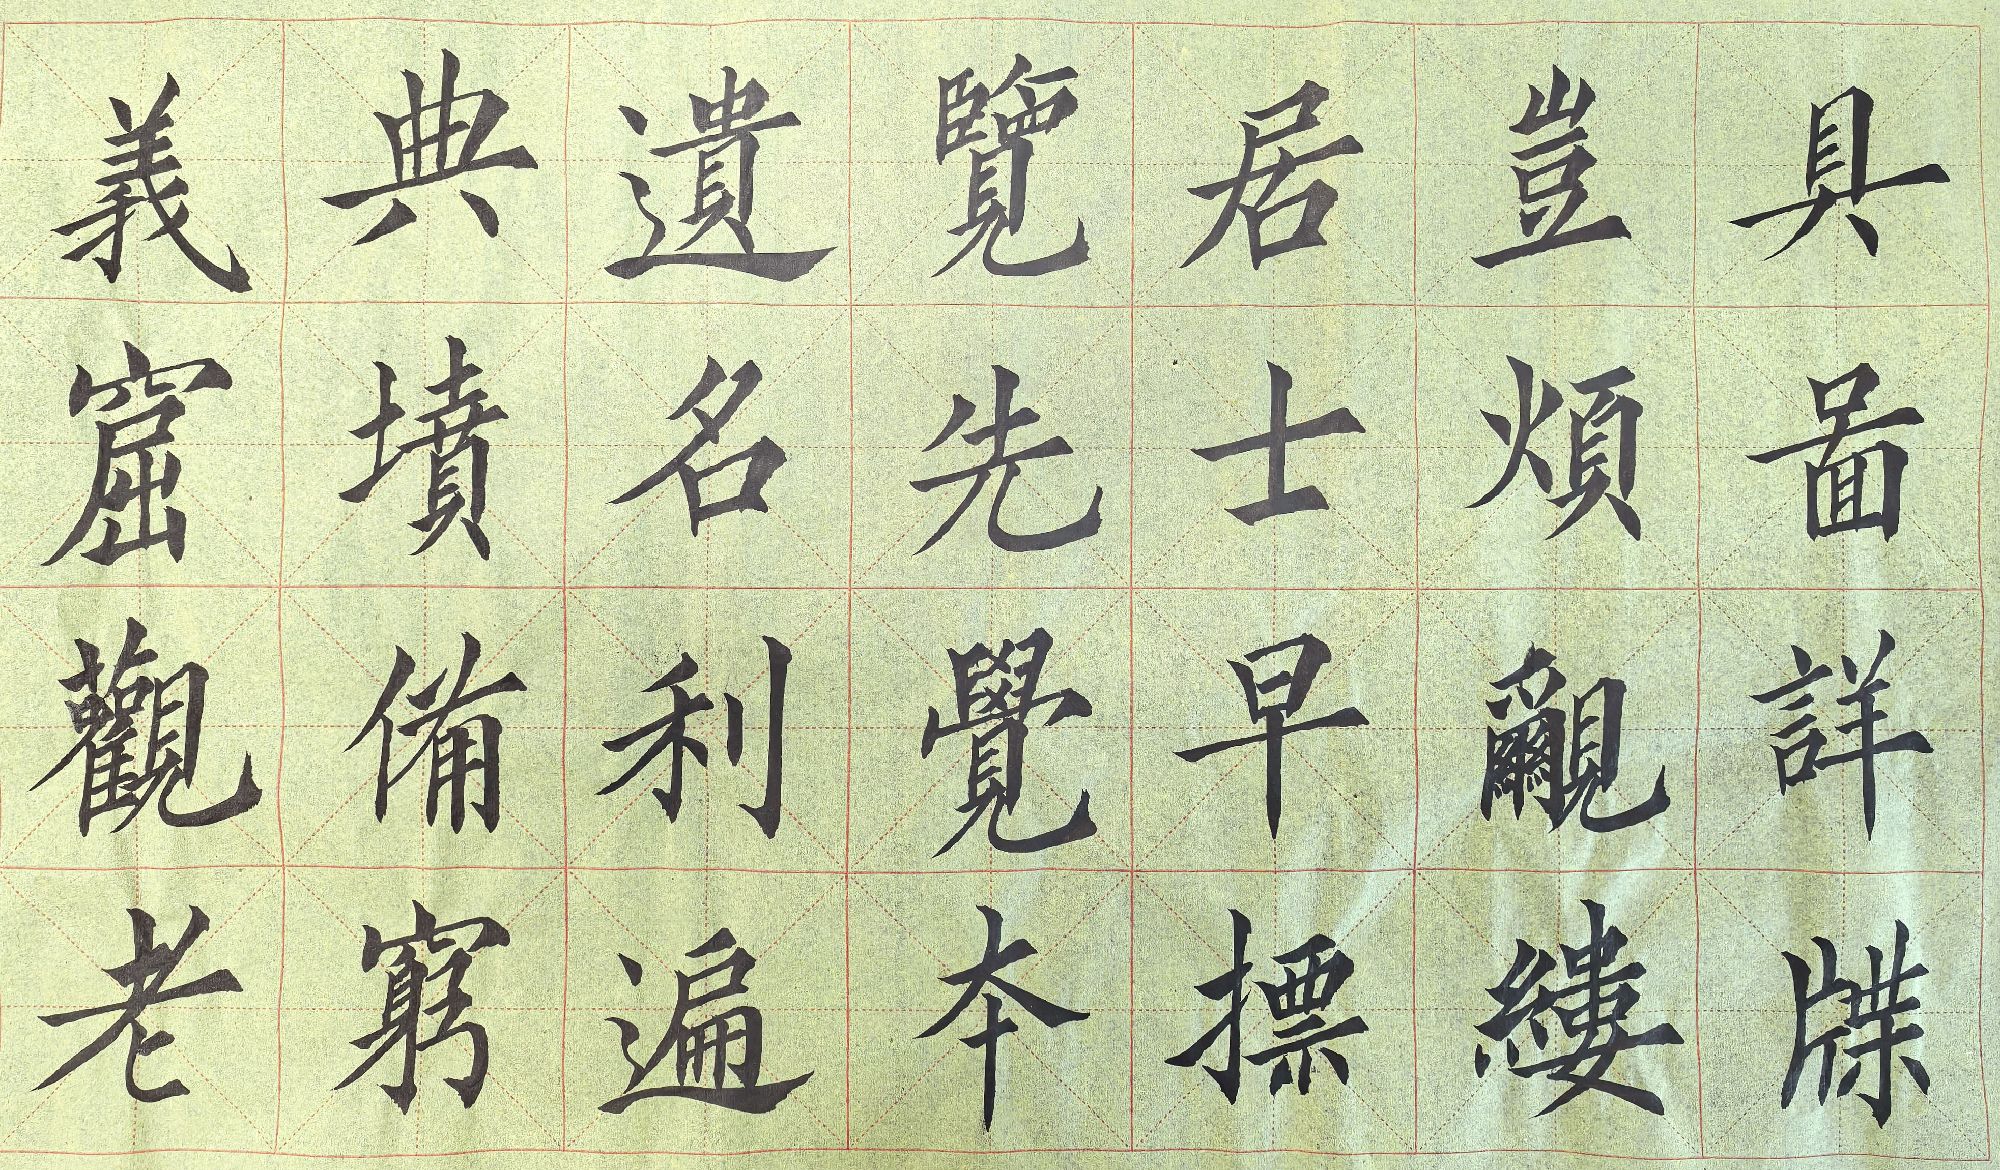 具啚詳牒
豈煩覼縷
居士早摽
覽先覺夲
遺名利遍
典墳俻窮
義窟觀老